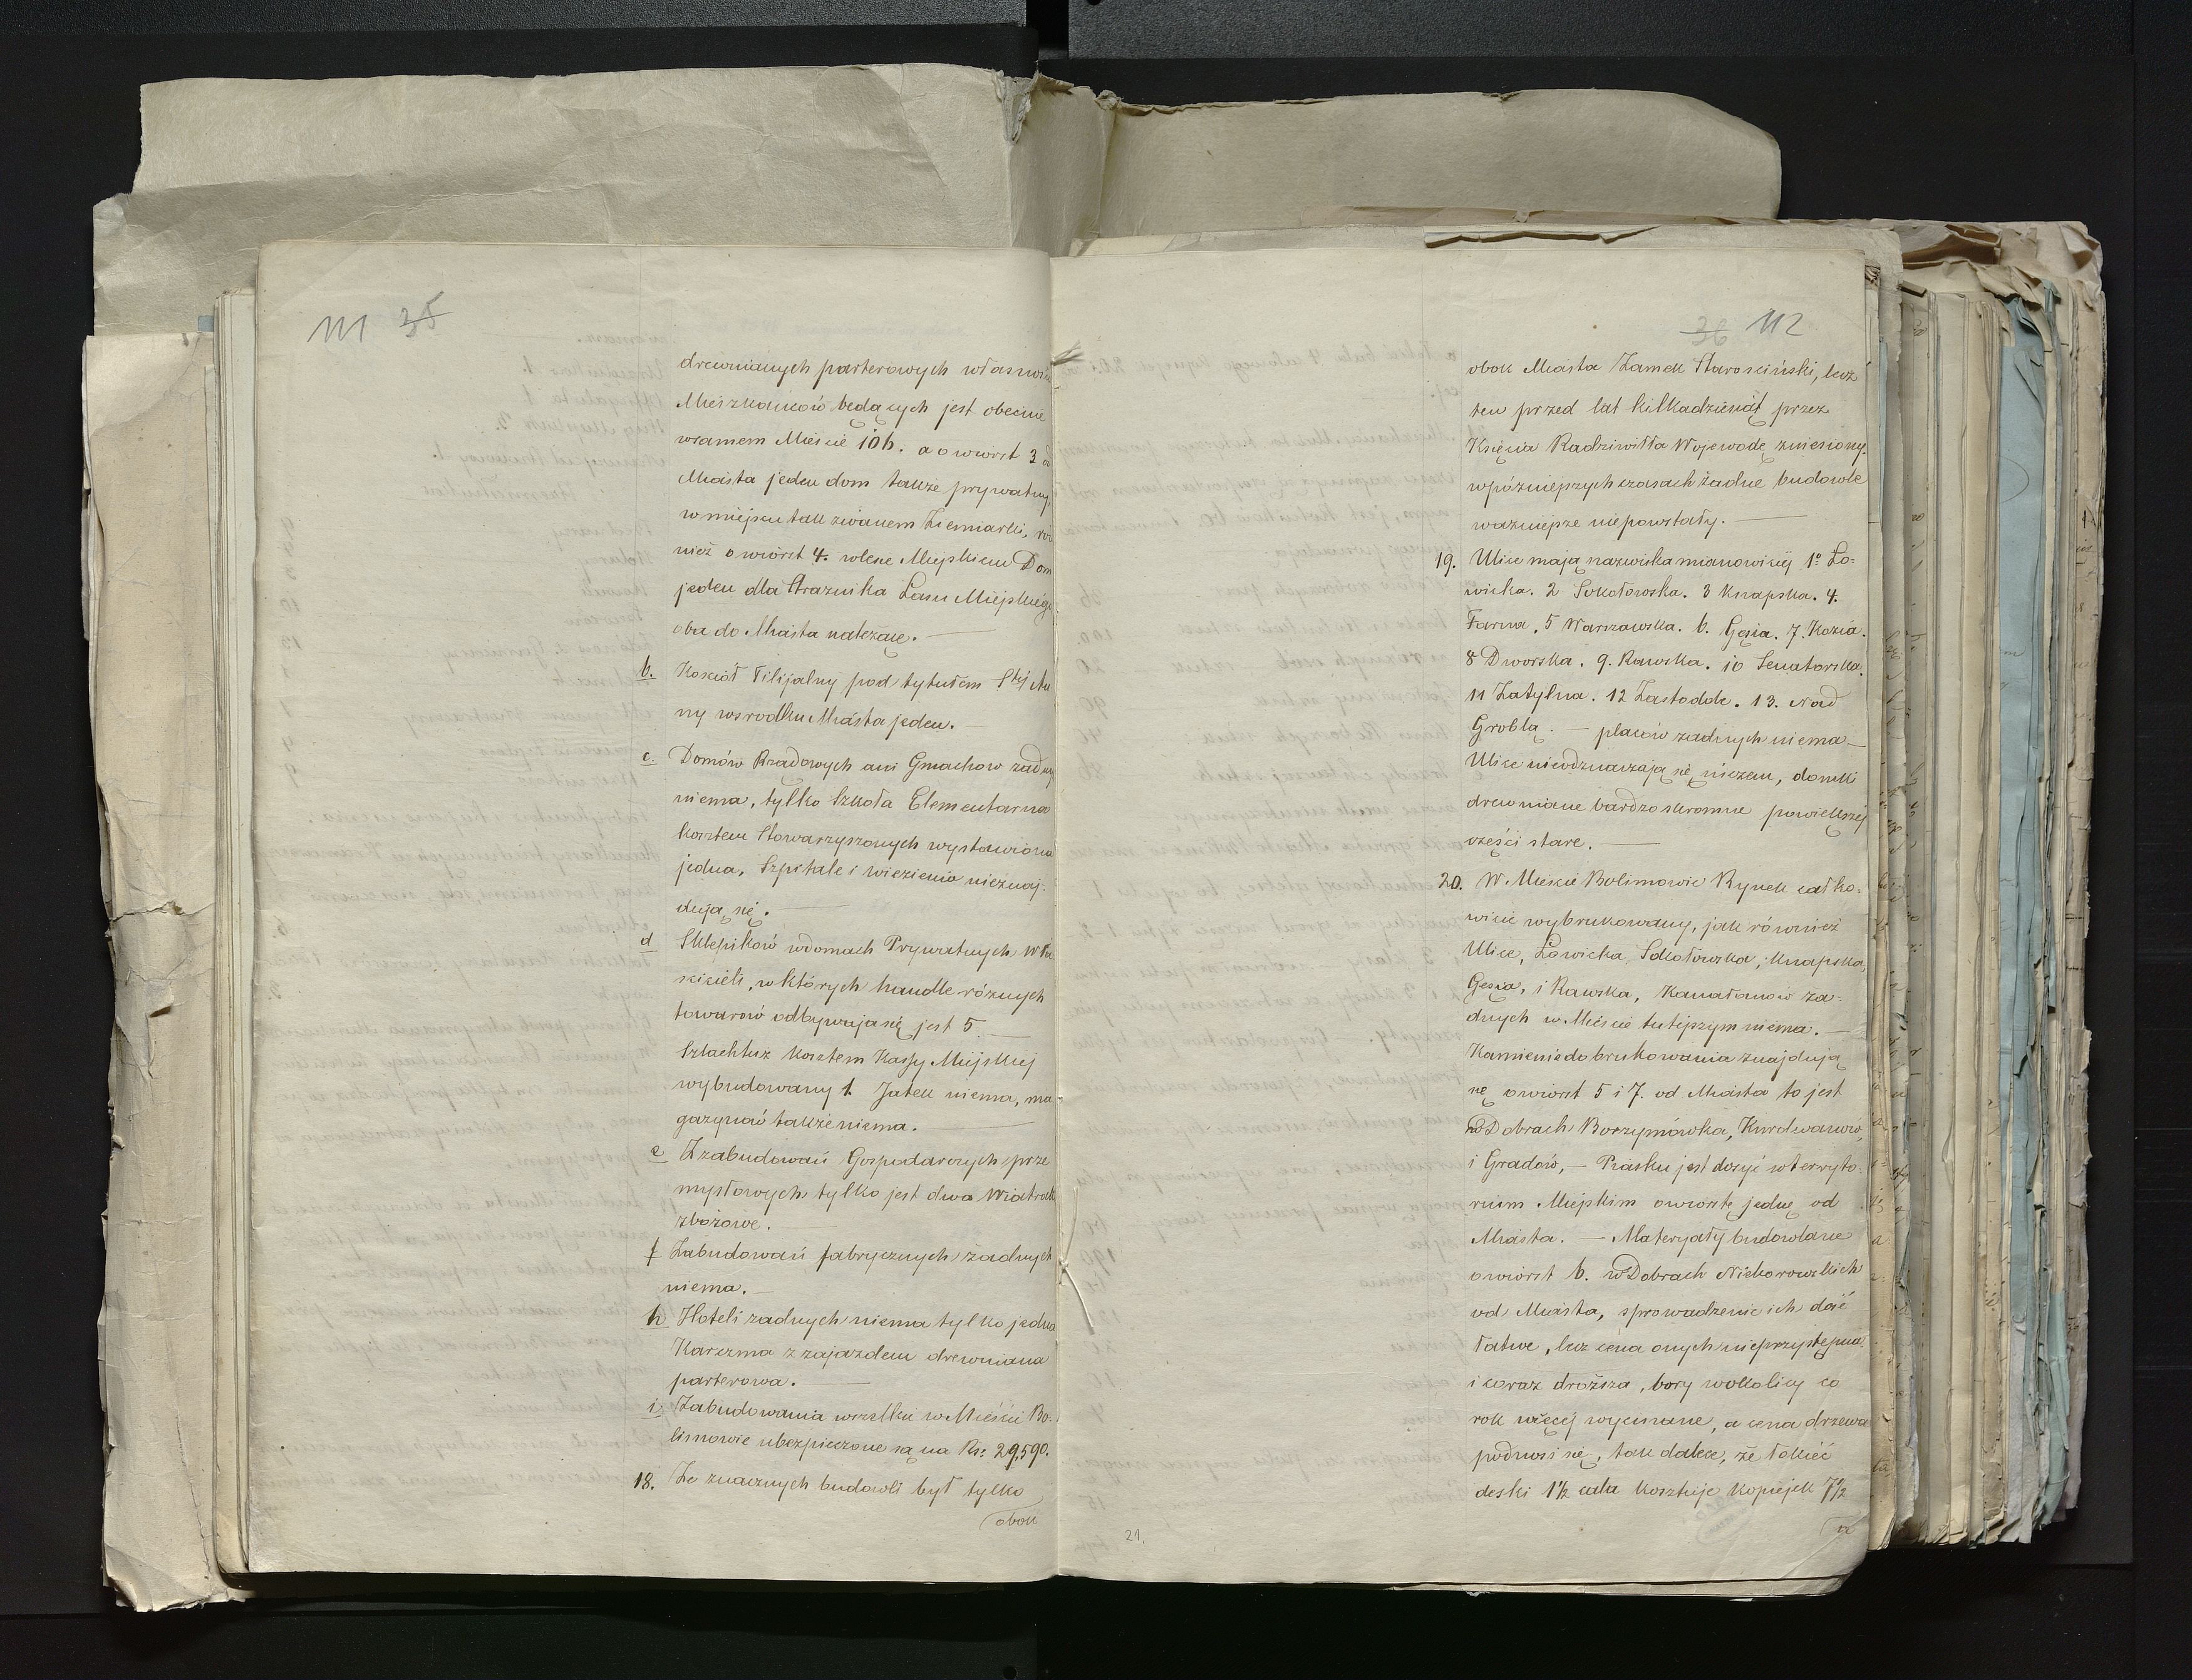 111 35
drewnianych parterowych własno
Mieszkańców będących jest obecnie
wsamem Mieście 106. a o wiorst 3 od
Miasta jeden dom także prywatny
w miejscu tak zwanem Ziemiarki, rów
nież o wiorst 4. wlesie Miejskiem Dom
jeden dla Strażnika Lasu Miejskiego
oba do Miasta należące. —
b. Kościół Filijalny pod tytułem Stej An
ny wsrodku Miasta jeden. —
c. Domów Rządowych ani Gmachow żadny
niema, tylko Szkoła Elementarna
kosztem Stowarzyszonych wystawiona
jedna, Szpitale i wiezienia nieznaj-
dują się. —
d Sklepików wdomach Prywatnych Wła
ścicieli, w których handle różnych
towarów odbywają się jest 5 —
Szlachtuz kosztem Kassy Miejskiej
wybudowany 1. Jatek niema, ma
gazynów także niema. —
e Z zabudowań Gospodarczych prze
mysłowych tylko jest dwa Wiatrak
zbożowe. —
f Zabudowań fabrycznych żadnych
niema. —
h Hoteli żadnych niema tylko jedna
Karczma z zajazdem drewniana
parterowa. —
i Zabudowania wszelkie w Mieście Bo-
limowie ubezpieczone są na Rs: 29,590.
18. Ze znacznych budowli był tylko
obok
36 112
obok Miasta Zamek Starosciński, lecz
ten przed lat kilkadziesiąt przez
Księcia Radziwiłła Wojewodę zniesiony.
wpóźniejszych czasach żadne budowle
ważniejsze niepowstały. —
19. Ulice mają nazwiska mianowicij 1o Ło-
wicka. 2 Sokołowska. 3 Knapska. 4.
Farna, 5 Warszawska. 6. Gęsia. 7. Kozia.
8 Dworska. 9. Rawska. 10 Senatorska.
11 Zatylna. 12 Zastodole. 13. Nad
Groblą. — placów żadnych niema —
Ulice nieodznaczają się niczem, domki
drewniane bardzo skromne powiększej
części stare. —
20. W Mieście Bolimowie Rynek całko-
wicie wybrukowany, jak również
Ulice, Łowicka, Sokołowska, Knapska,
Gęsia, i Rawska, Kanałanow ża-
dnych w Mieście tutejszym niema. —
Kamienie do brukowania znajdują
się o wiorst 5 i 7. od Miasta to jest
w Dobrach Borzymówka, Kurdwanów,
i Gradów, — Piasku jest dosyć w terryto-
rium Miejskim o wiorstę jednę od
Miasta. — Materyały budowlane
o wiorst 6. w Dobrach Nieborowskich
od Miasta, sprowadzenie ich dość
łatwe, lecz cena onych nieprzystępna
i coraz droższa, bory wokolicy co
rok więcej wycinane, a cena drzewa
podnosi się, tak dalece, że łokieć
deski 1 1/2 cala kosztuje kopiejek 7 1/2
21.